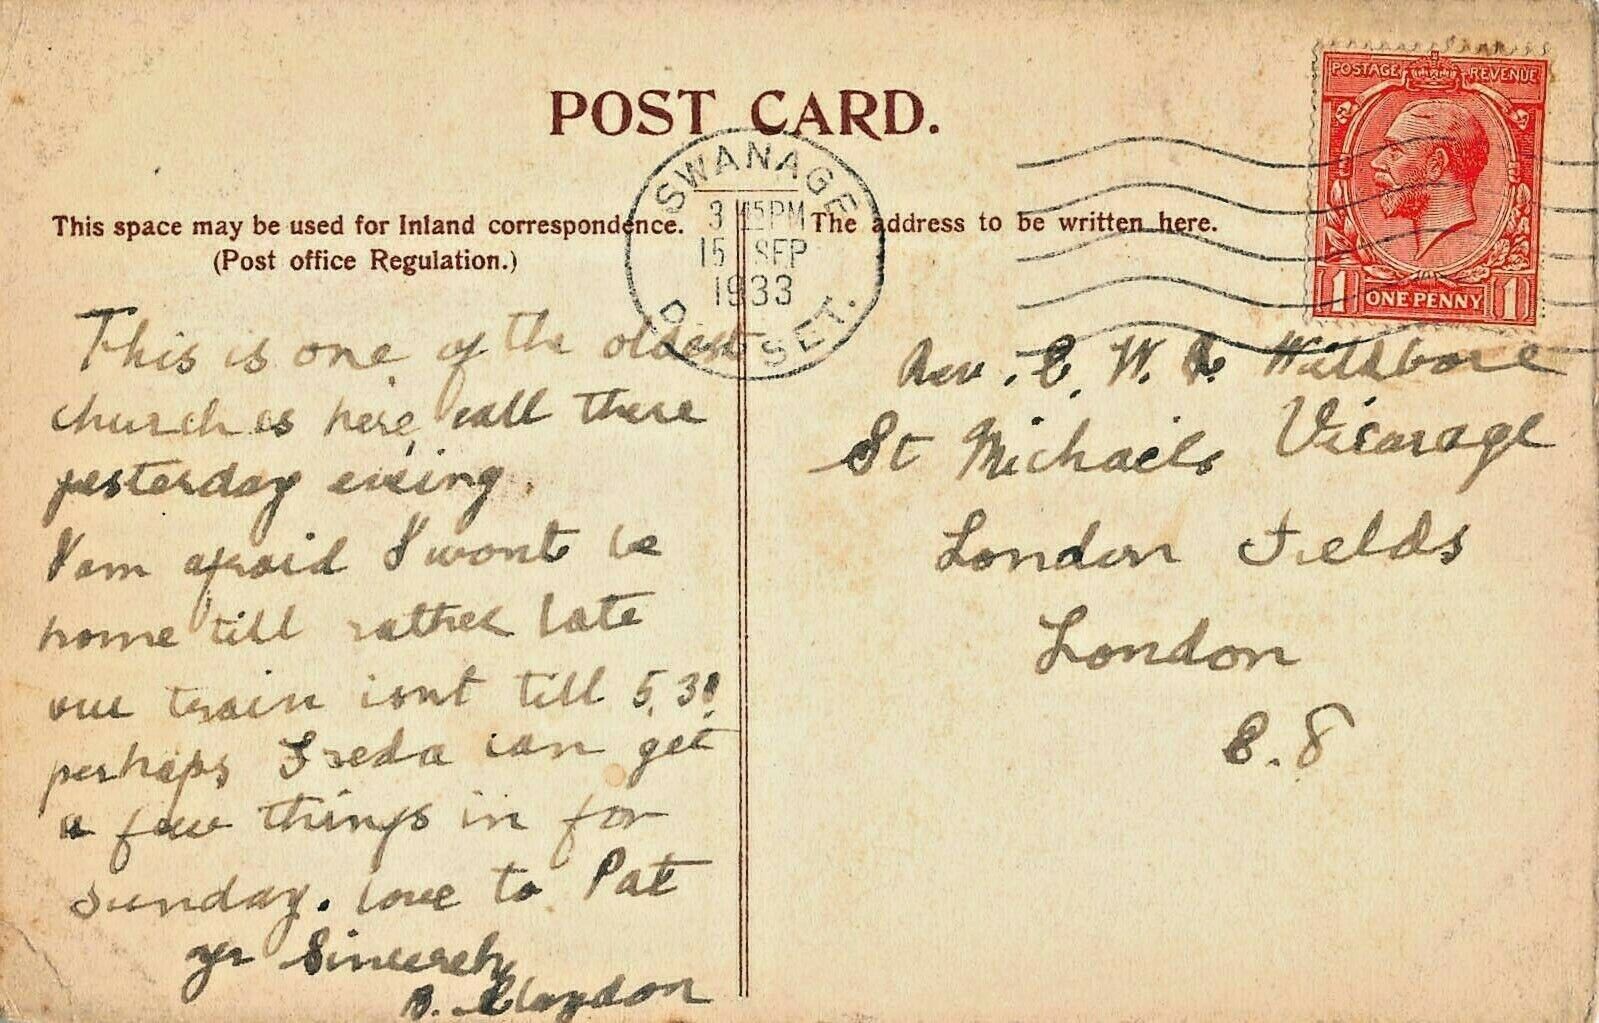 POST CARD.
SWANAGE
3 15PM
15 SEP
1933
SET.
POSTAGE REVENUE
1 ONE PENNY 1
This space may be used for Inland correspondence.
(Post office Regulation.)
The address to be written here.
This is one of the oldest
churches here, call there
yesterday evening.
I am afraid I wont be
home till rather late
our train isnt till 5.30
perhaps Freda can get
a few things in for
sunday. love to Pat
yr Sincerely
B. Claydon
Rev. E. W.
St Michaels Vicarage
London Fields
London
E. 8